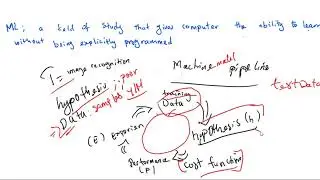 ML: a field of study that gives computer the ability to learn
without being explicitly programmed
T = image recognition
Machine model pipeline
hypothesis: poor
test Data
DATA: samples
training
Data
hypothesis (h)
(E) Experien
Performance
(P)
cost function